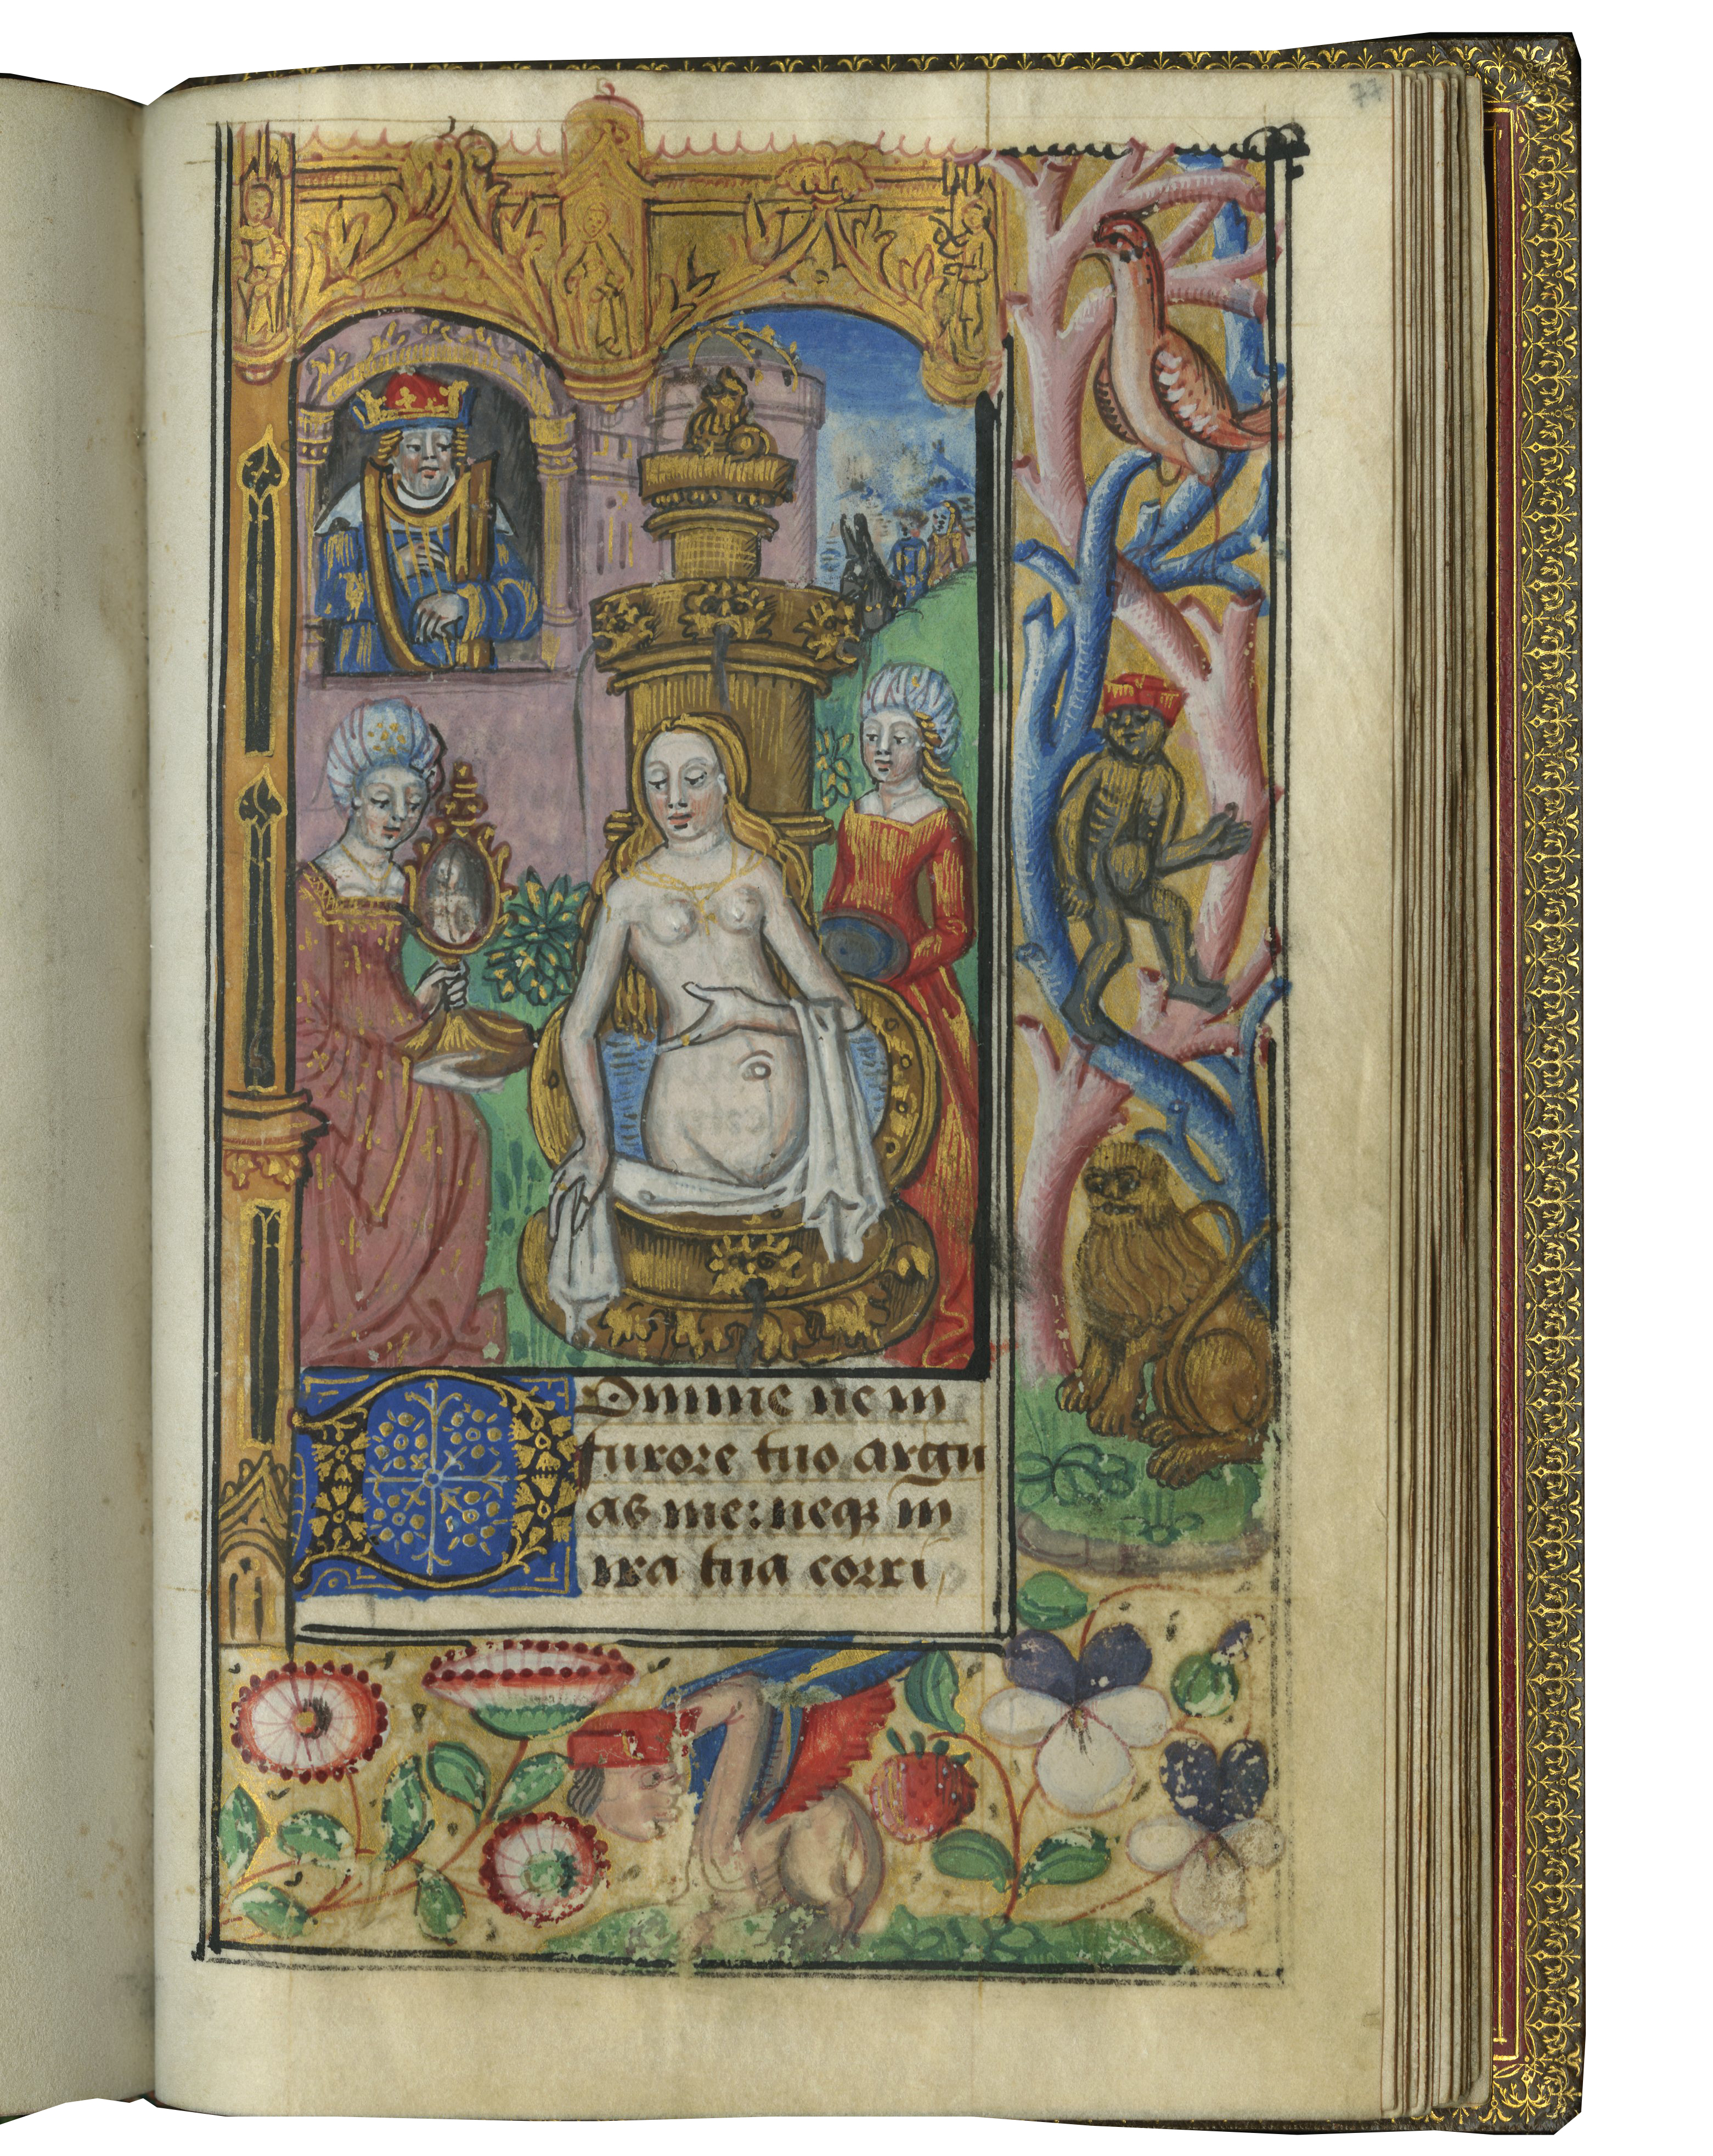 77
Domine ne in
furore tuo argu
as me: neqꝫ in
ira tua corri